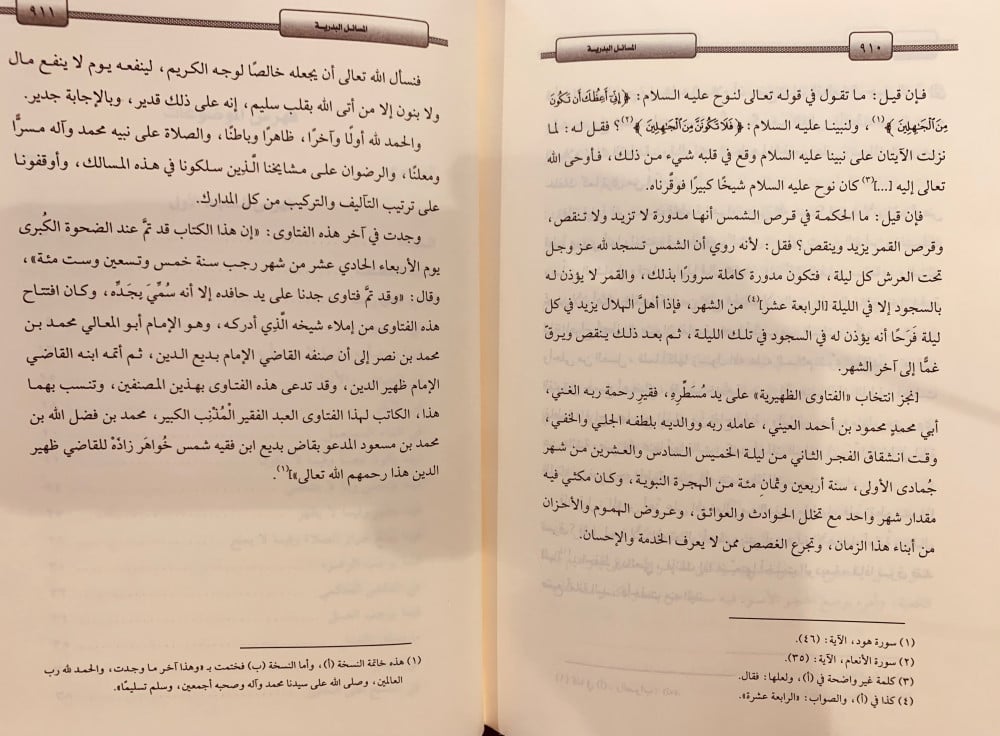 ٩١٠
المسائل البدرية
فإن قيل: ما تقول في قوله تعالى لنوح عليه السلام: ﴿إِنِّيٓ أَعِظُكَ أَن تَكُونَ
مِنَ ٱلْجَٰهِلِينَ﴾(١)، ولنبينا عليه السلام: ﴿فَلَا تَكُونَنَّ مِنَ ٱلْجَٰهِلِينَ﴾(٢)؟ فقل له: لما
نزلت الآيتان على نبينا عليه السلام وقع في قلبه شيء من ذلك، فأوحى الله
تعالى إليه [...](٣) كان نوح عليه السلام شيخًا كبيرًا فوقَّرناه.
فإن قيل: ما الحكمة في قرص الشمس أنها مدورة لا تزيد ولا تنقص،
وقرص القمر يزيد وينقص؟ فقل: لأنه روي أن الشمس تسجد لله عز وجل
تحت العرش كل ليلة، فتكون مدورة كاملة سرورًا بذلك، والقمر لا يؤذن له
بالسجود إلا في الليلة [الرابعة عشر](٤) من الشهر، فإذا أهلَّ الهلال يزيد في كل
ليلة فَرَحًا أنه يؤذن له في السجود في تلك الليلة، ثم بعد ذلك ينقص ويرقّ
غمًّا إلى آخر الشهر.
[نجز انتخاب «الفتاوى الظهيرية» على يد مُسَطِّرِهِ، فقيرِ رحمة ربه الغني،
أبي محمدٍ محمود بن أحمد العيني، عامله ربه ووالديه بلطفه الجلي والخفي،
وقت انشقاق الفجر الثاني من ليلة الخميس السادس والعشرين من شهر
جُمادى الأولى، سنة أربعين وثمانِ مئة من الهجرة النبوية، وكان مكثي فيه
مقدار شهر واحد مع تخلل الحوادث والعوائق، وعروض الهموم والأحزان
من أبناء هذا الزمان، وتجرع الغصص ممن لا يعرف الخدمة والإحسان.
(١) سورة هود، الآية: (٤٦).
(٢) سورة الأنعام، الآية: (٣٥).
(٣) كلمة غير واضحة في (أ)، ولعلها: فقال.
(٤) كذا في (أ)، والصواب: «الرابعة عشرة».
المسائل البدرية
٩١١
فنسأل الله تعالى أن يجعله خالصًا لوجه الكريم، لينفعه يوم لا ينفع مال
ولا بنون إلا من أتى الله بقلب سليم، إنه على ذلك قدير، وبالإجابة جدير.
والحمد لله أولًا وآخرًا، ظاهرًا وباطنًا، والصلاة على نبيه محمد وآله مسرًّا
ومعلنًا، والرضوان على مشايخنا الَّذين سلكونا في هذه المسالك، وأوقفونا
على ترتيب التآليف والتركيب من كل المدارك.
وجدت في آخر هذه الفتاوى: «إن هذا الكتاب قد تمَّ عند الضحوة الكُبرى
يوم الأربعاء الحادي عشر من شهر رجب سنة خمس وتسعين وست مئة»،
وقال: «وقد تمَّ فتاوى جدنا على يد حافده إلا أنه سُمِّيَ بجَدِّه، وكان افتتاح
هذه الفتاوى من إملاء شيخه الَّذي أدركه، وهو الإمام أبو المعالي محمد بن
محمد بن نصر إلى أن صنفه القاضي الإمام بديع الدين، ثم أتمه ابنه القاضي
الإمام ظهير الدين، وقد تدعى هذه الفتاوى بهذين المصنفين، وتنسب بهما
هذا، الكاتب لهذا الفتاوى العبد الفقير الْمُذْنِب الكبير، محمد بن فضل الله بن
محمد بن مسعود المدعو بقاض بديع ابن فقيه شمس خُواهَر زادَهْ للقاضي ظهير
الدين هذا رحمهم الله تعالى»](١).
(١) هذه خاتمة النسخة (أ)، وأما النسخة (ب) فختمت بـ «وهذا آخر ما وجدت، والحمد لله رب
العالمين، وصلى الله على سيدنا محمد وآله وصحبه أجمعين، وسلم تسليمًا».